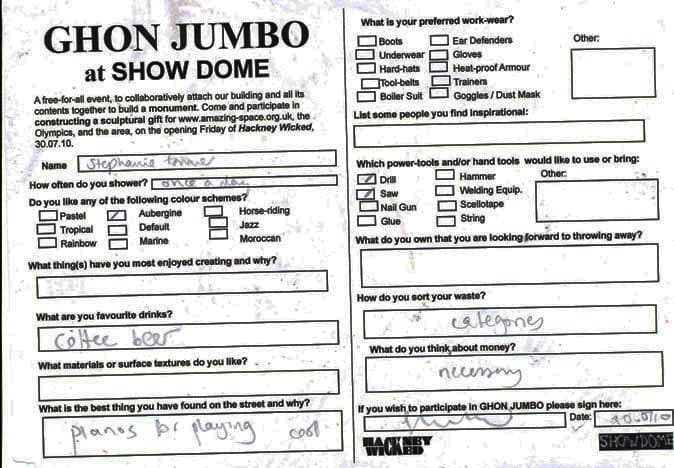 GHON JUMBO
at SHOW DOME
A free-for-all event, to collaboratively attach our building and all its
contents together to build a monument. Come and participate in
constructing a sculptural gift for www.amazing-space.org.uk, the
Olympics, and the area, on the opening Friday of Hackney Wicked,
30.07.10.
Name Stephanie
How often do you shower? once a day
Do you like any of the following colour schemes?
Pastel Aubergine Horse-riding
Tropical Default Jazz
Rainbow Marine Moroccan
What thing(s) have you most enjoyed creating and why?
What are you favourite drinks?
coffee beer
What materials or surface textures do you like?
What is the best thing you have found on the street and why?
pianos for playing cool
What is your preferred work-wear?
Boots Ear Defenders Other:
Underwear Gloves
Hard-hats Heat-proof Armour
Tool-belts Trainers
Boiler Suit Goggles / Dust Mask
List some people you find inspirational:
Which power-tools and/or hand tools would like to use or bring:
Drill Hammer Other:
Saw Welding Equip.
Nail Gun Scellotape
Glue String
What do you own that you are looking forward to throwing away?
How do you sort your waste?
categories
What do you think about money?
necessary
If you wish to participate in GHON JUMBO please sign here:
Date:
HACKNEY
WICKED
SHOWDOME